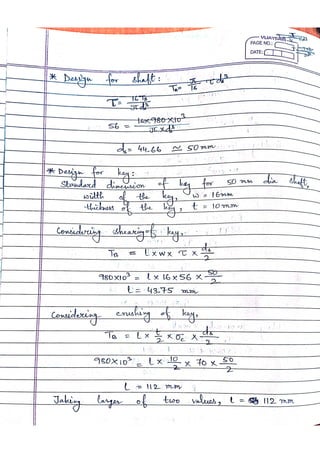 VIJAYTEJ
PAGE NO.:
DATE:
* Design for shaft: T_B = π/16 τ d_s³
τ = 16 T_B / π d_s³
56 = 16×980×10³ / π×d_s³
d_s = 44.66 ≃ 50 mm
* Design for key:
Standard dimension of key for 50 mm dia shaft,
width of the key, w = 16mm
thickness of the key, t = 10mm
Considering shearing of key,
T_B = l × w × τ × d_s/2
980×10³ = l × 16 × 56 × 50/2
l = 43.75 mm
Considering crushing of key,
T_B = l × t/2 × σ_c × d_s/2
980×10³ = l × 10/2 × 70 × 50/2
l = 112 mm
Taking larger of two values, l = 112 mm